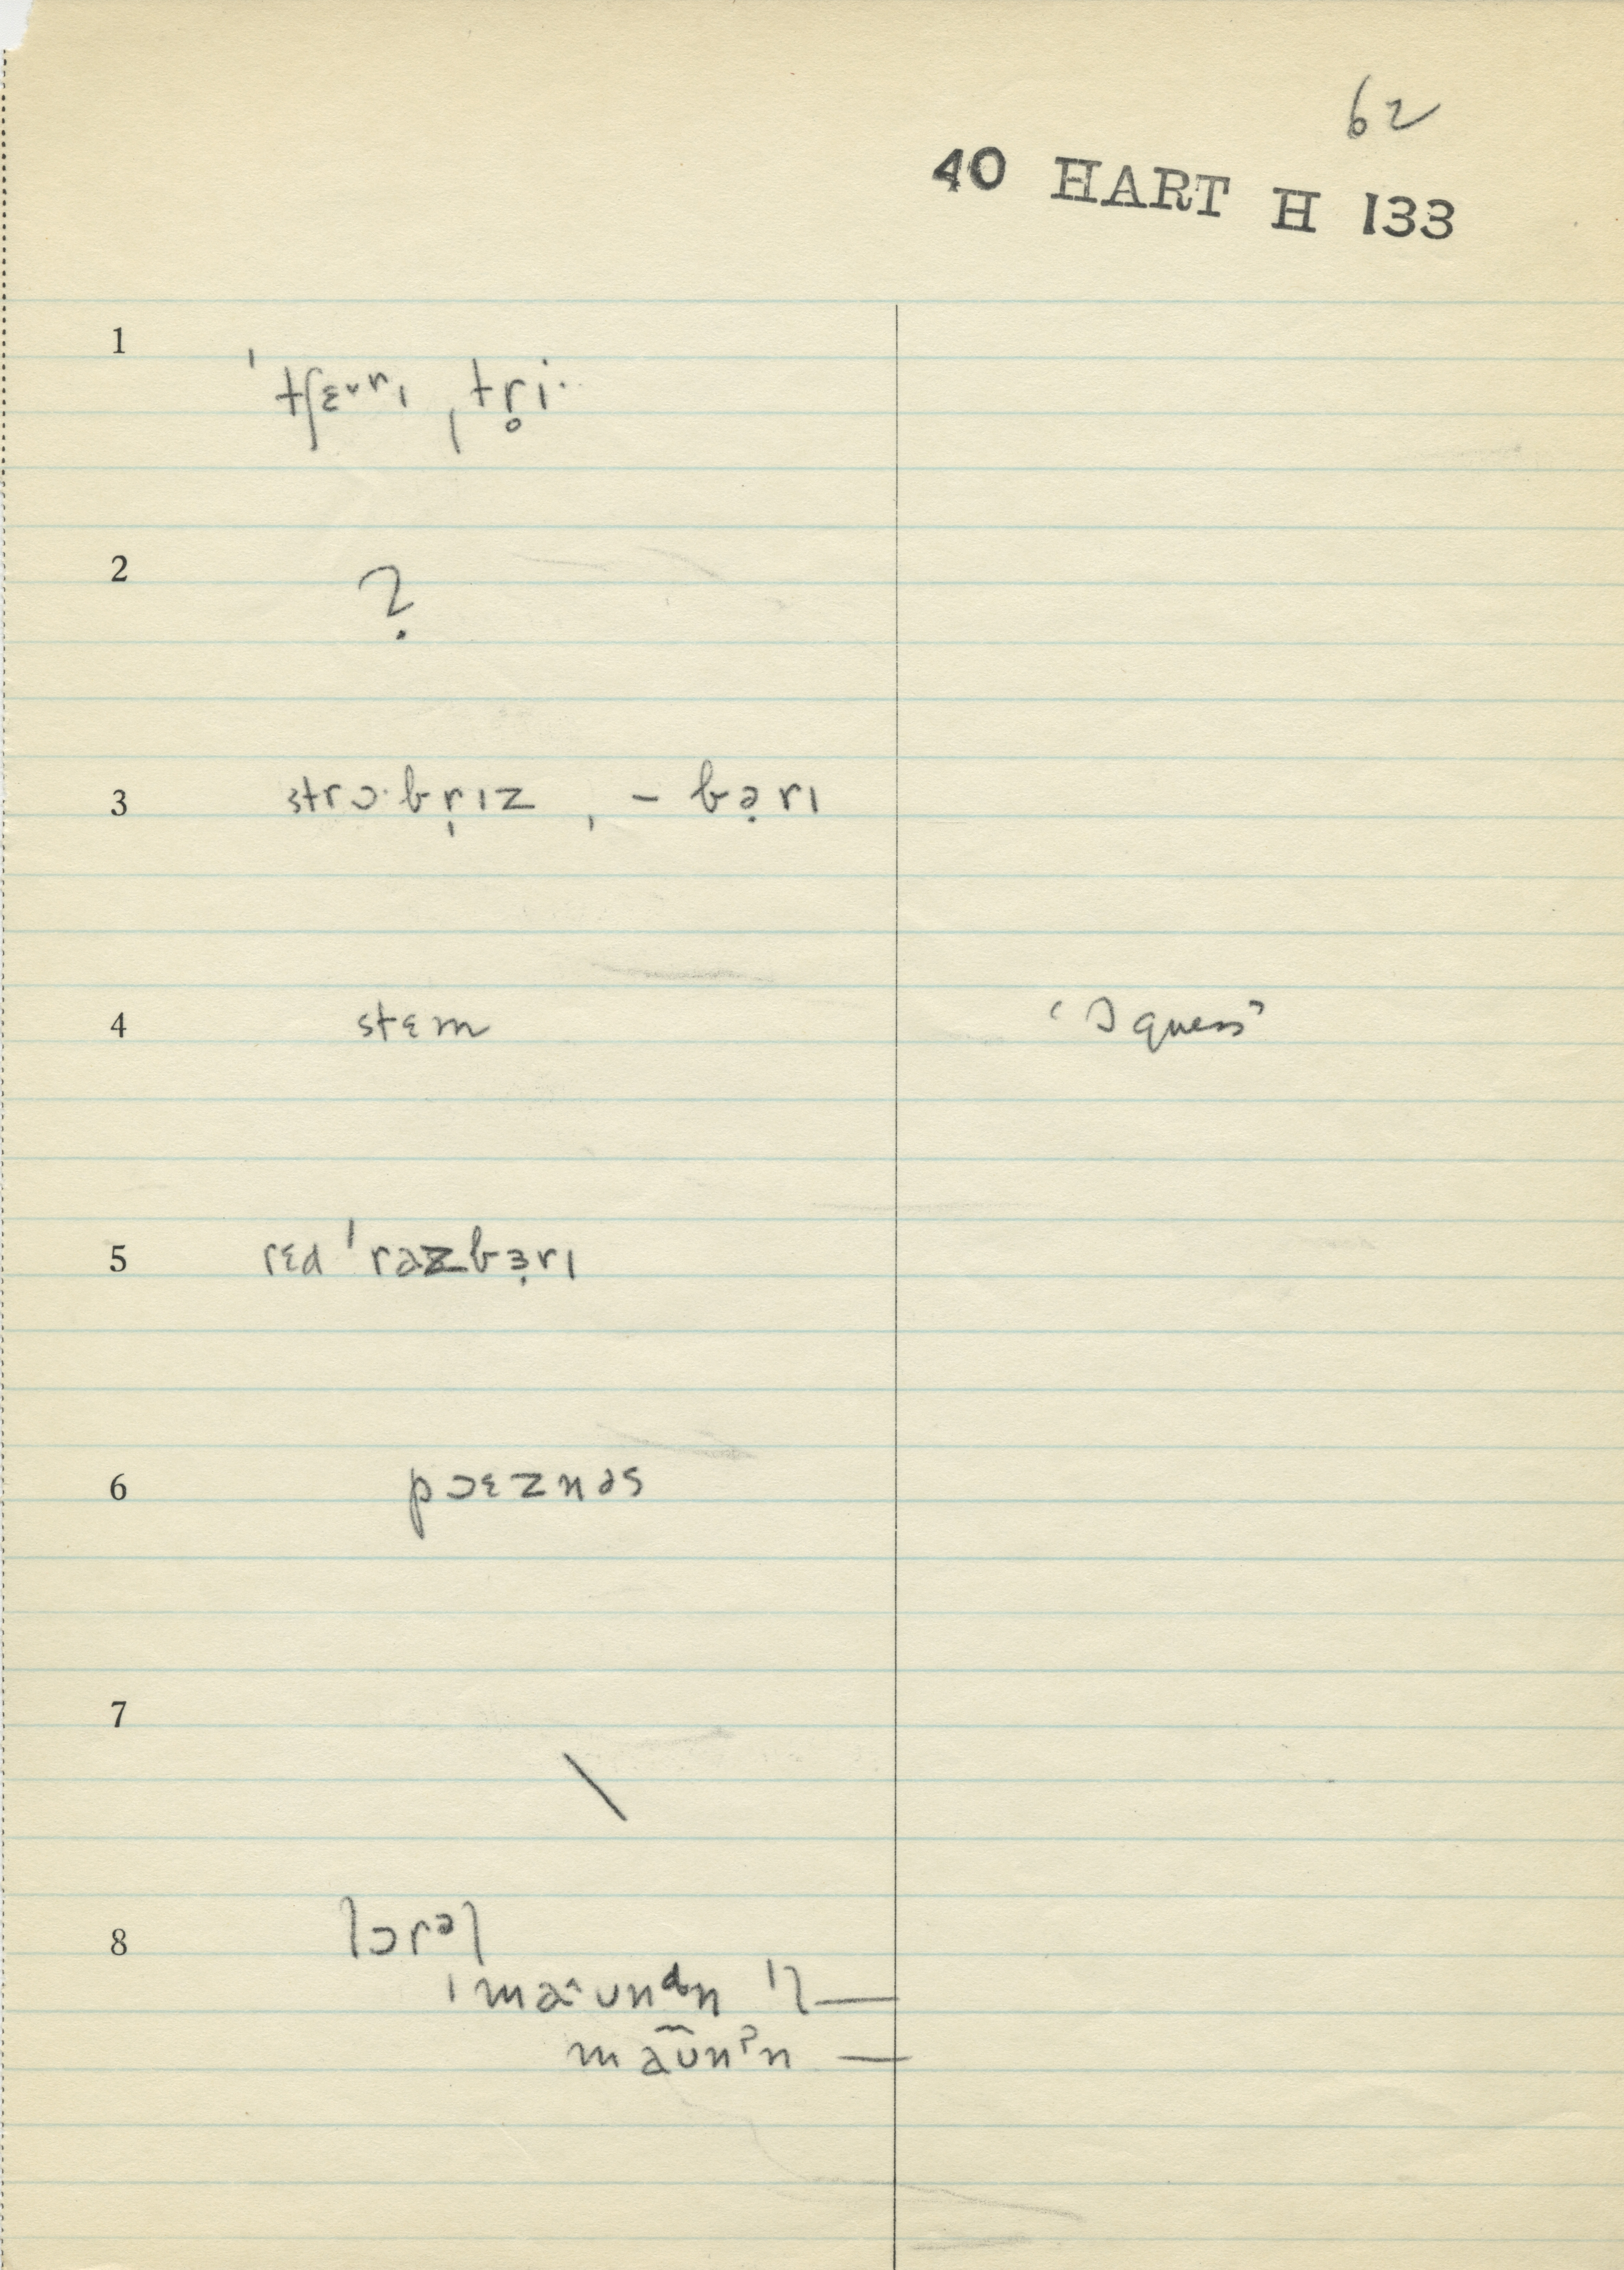 62
40 HART H 133
1 ˈtʃɛ˅rɪ , tr̥i·
2 ?
3 strɔ·br̩ɪz , – bə̣rɪ
4 stɛm ‘I guess’
5 rɛd ˈrazbɜ̣rɪ
6 pɔɛznəs
7 \
8 lɔrəl
ˈmaˆʊndn ˈl —
maʊ̃nʔn —